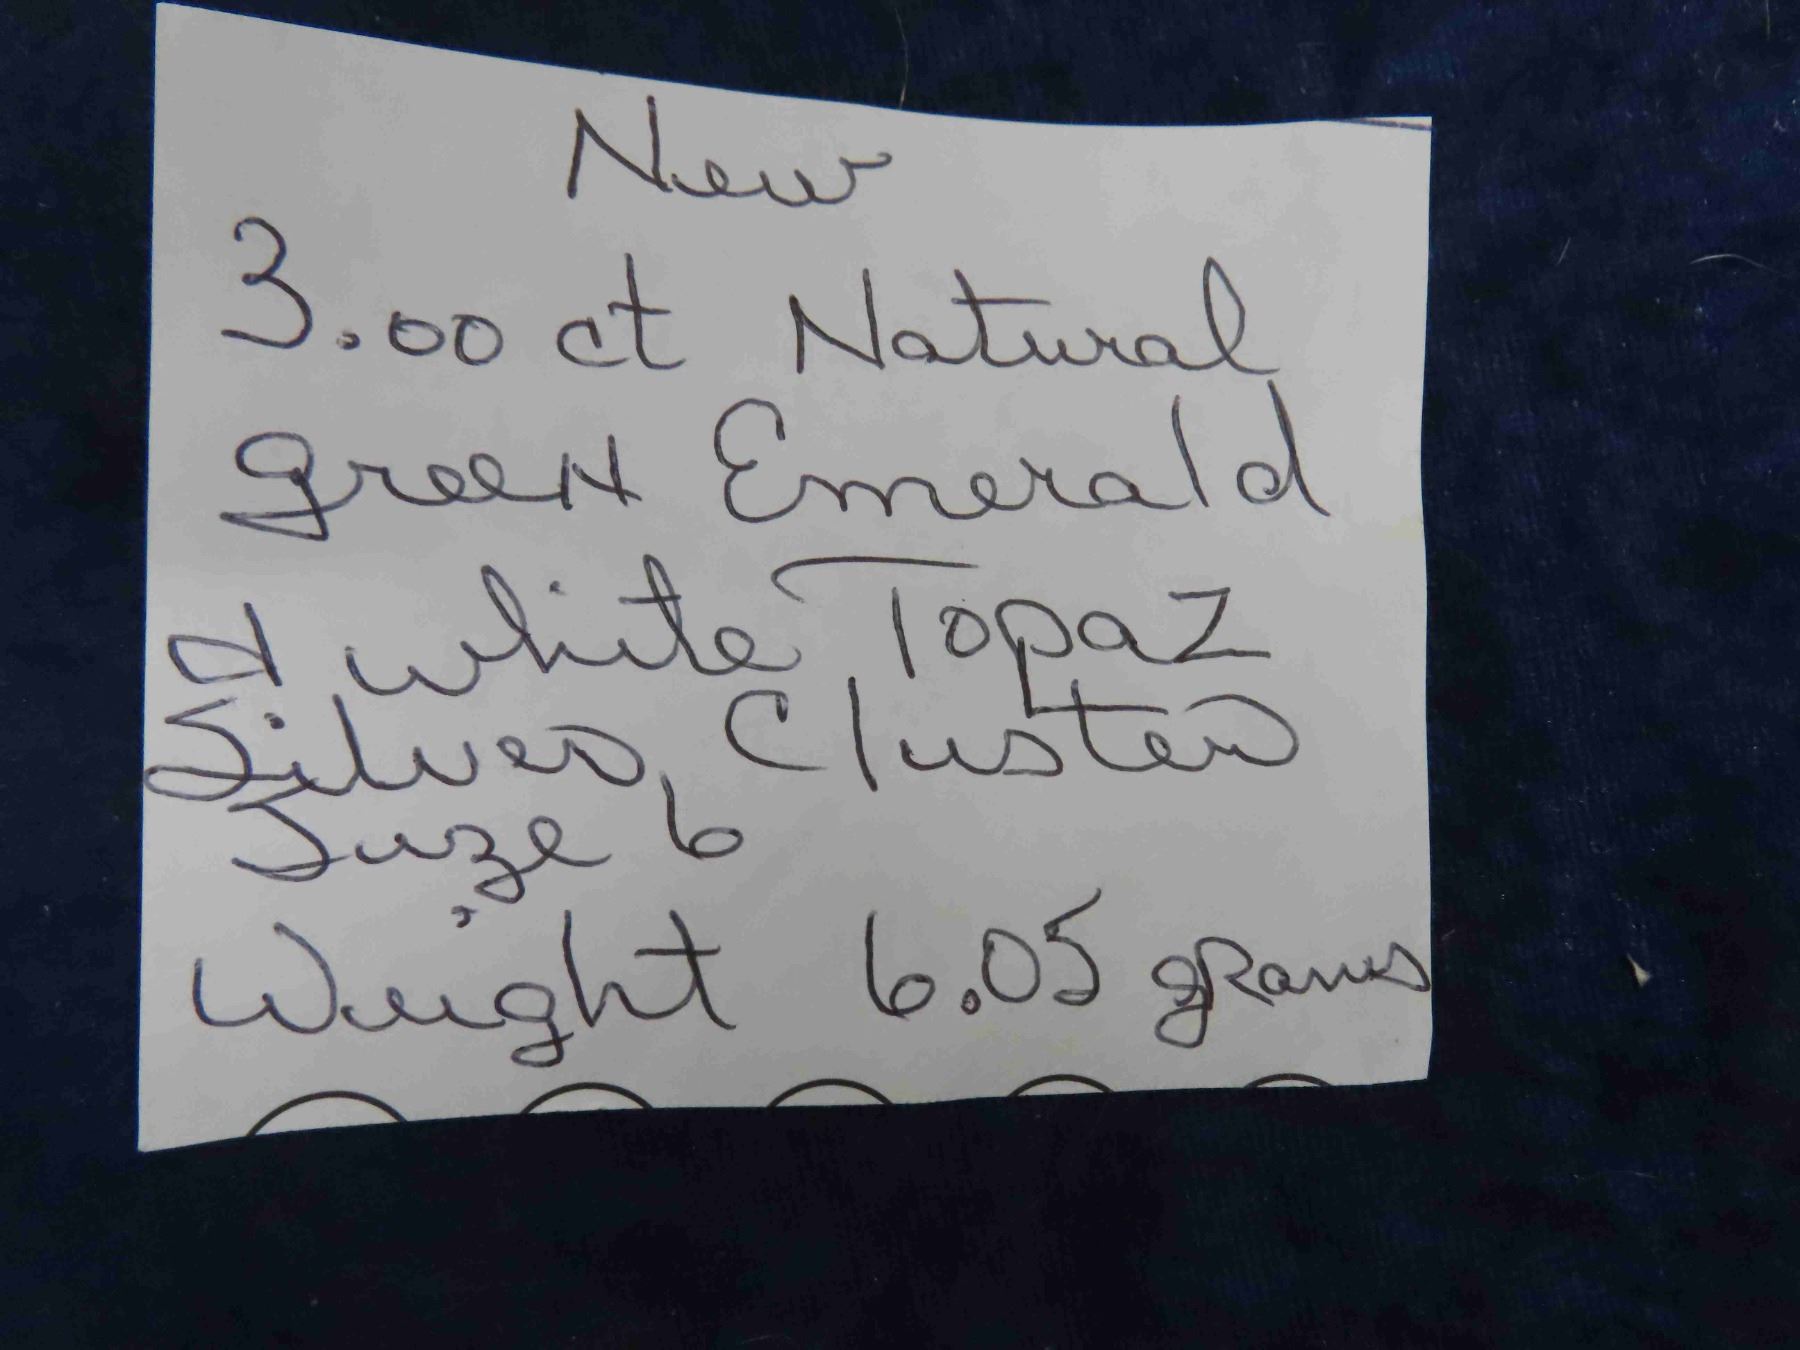 New
3.00 ct Natural
green Emerald
& white Topaz
Silver, Cluster
Size 6
Weight 6.05 grams